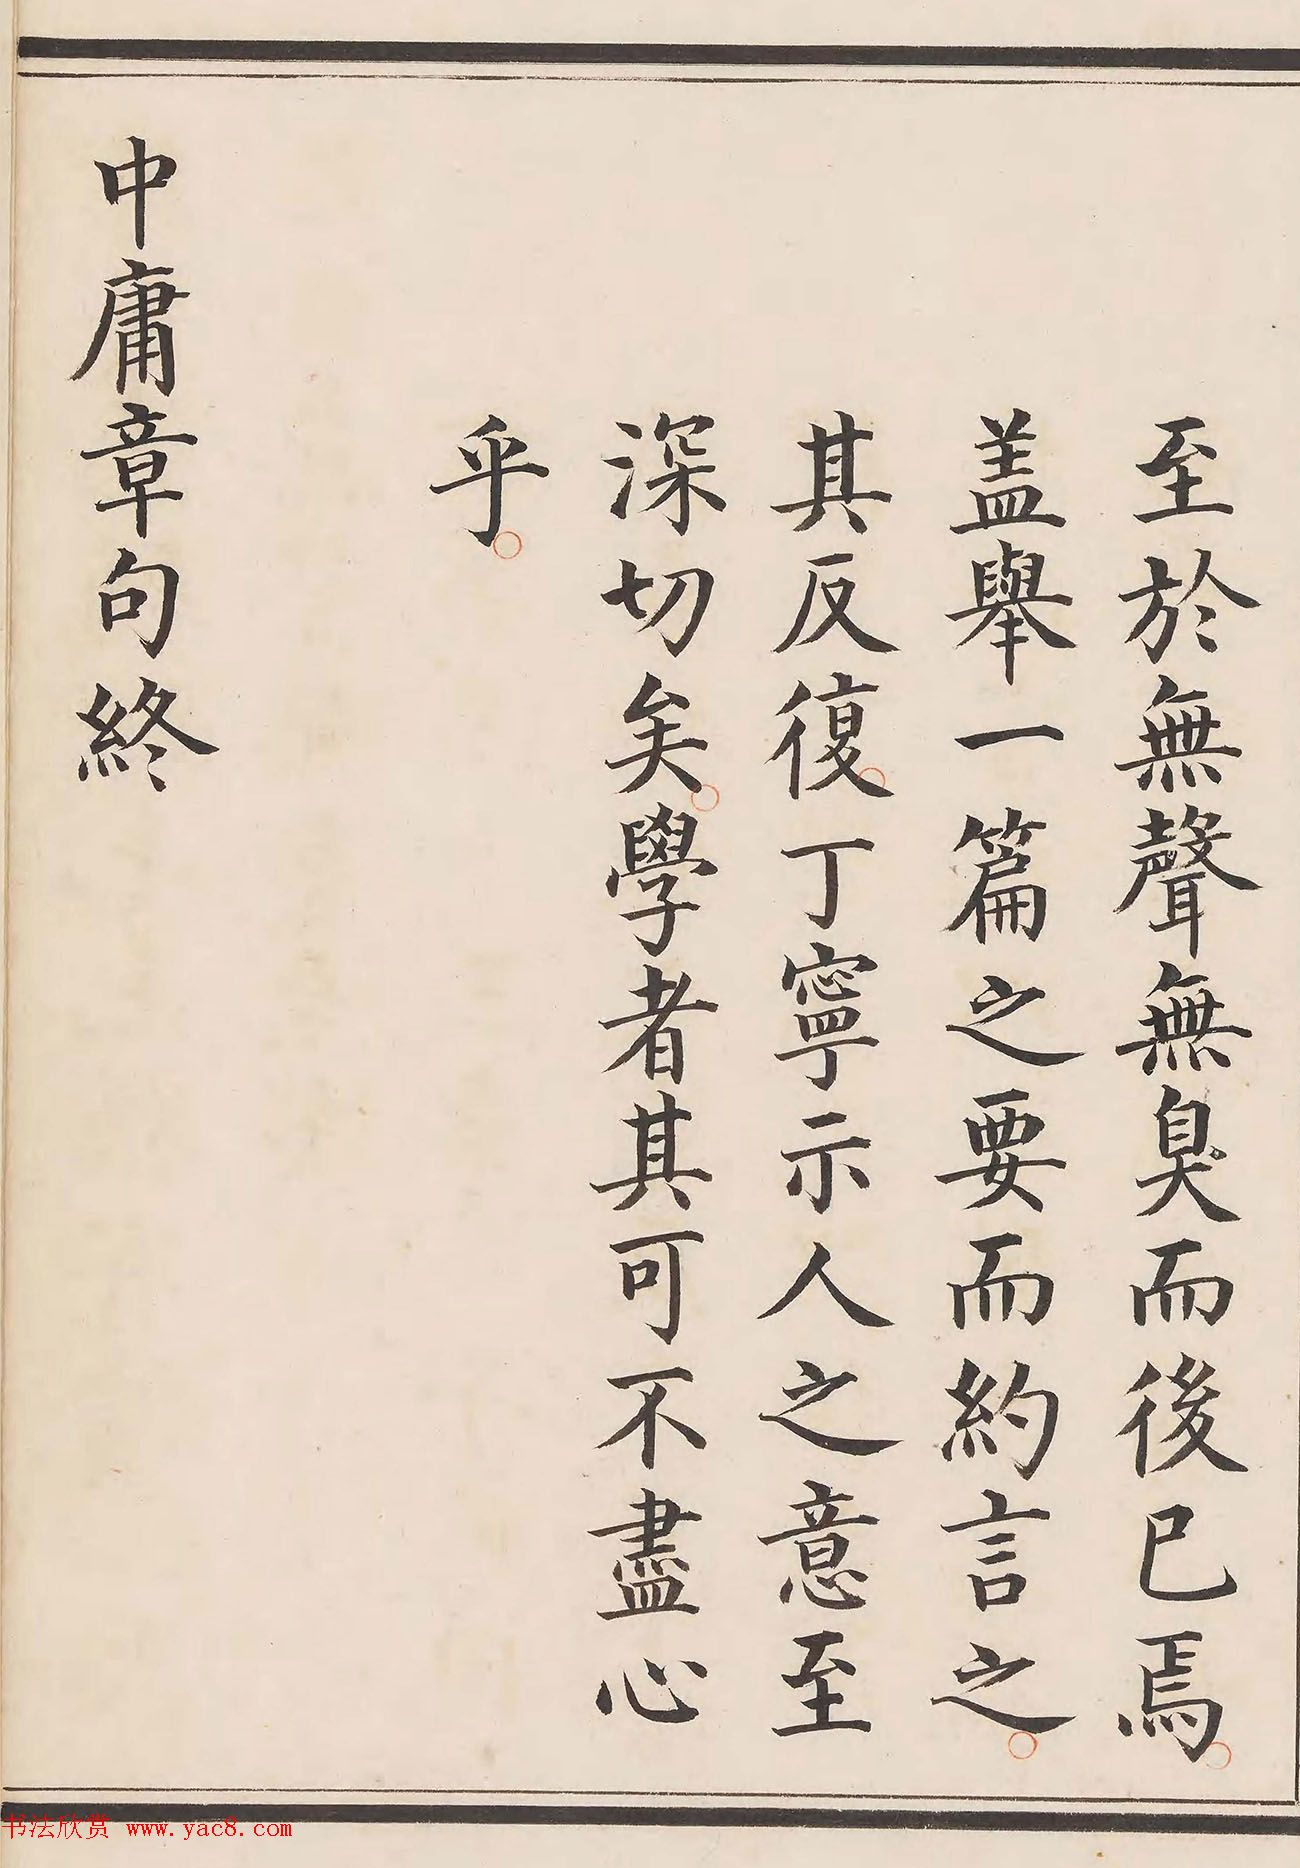 至於無聲無臭而後已焉
盖舉一篇之要而約言之
其反復丁寧示人之意至
深切矣學者其可不盡心
乎
中庸章句終
书法欣赏 www.yac8.com